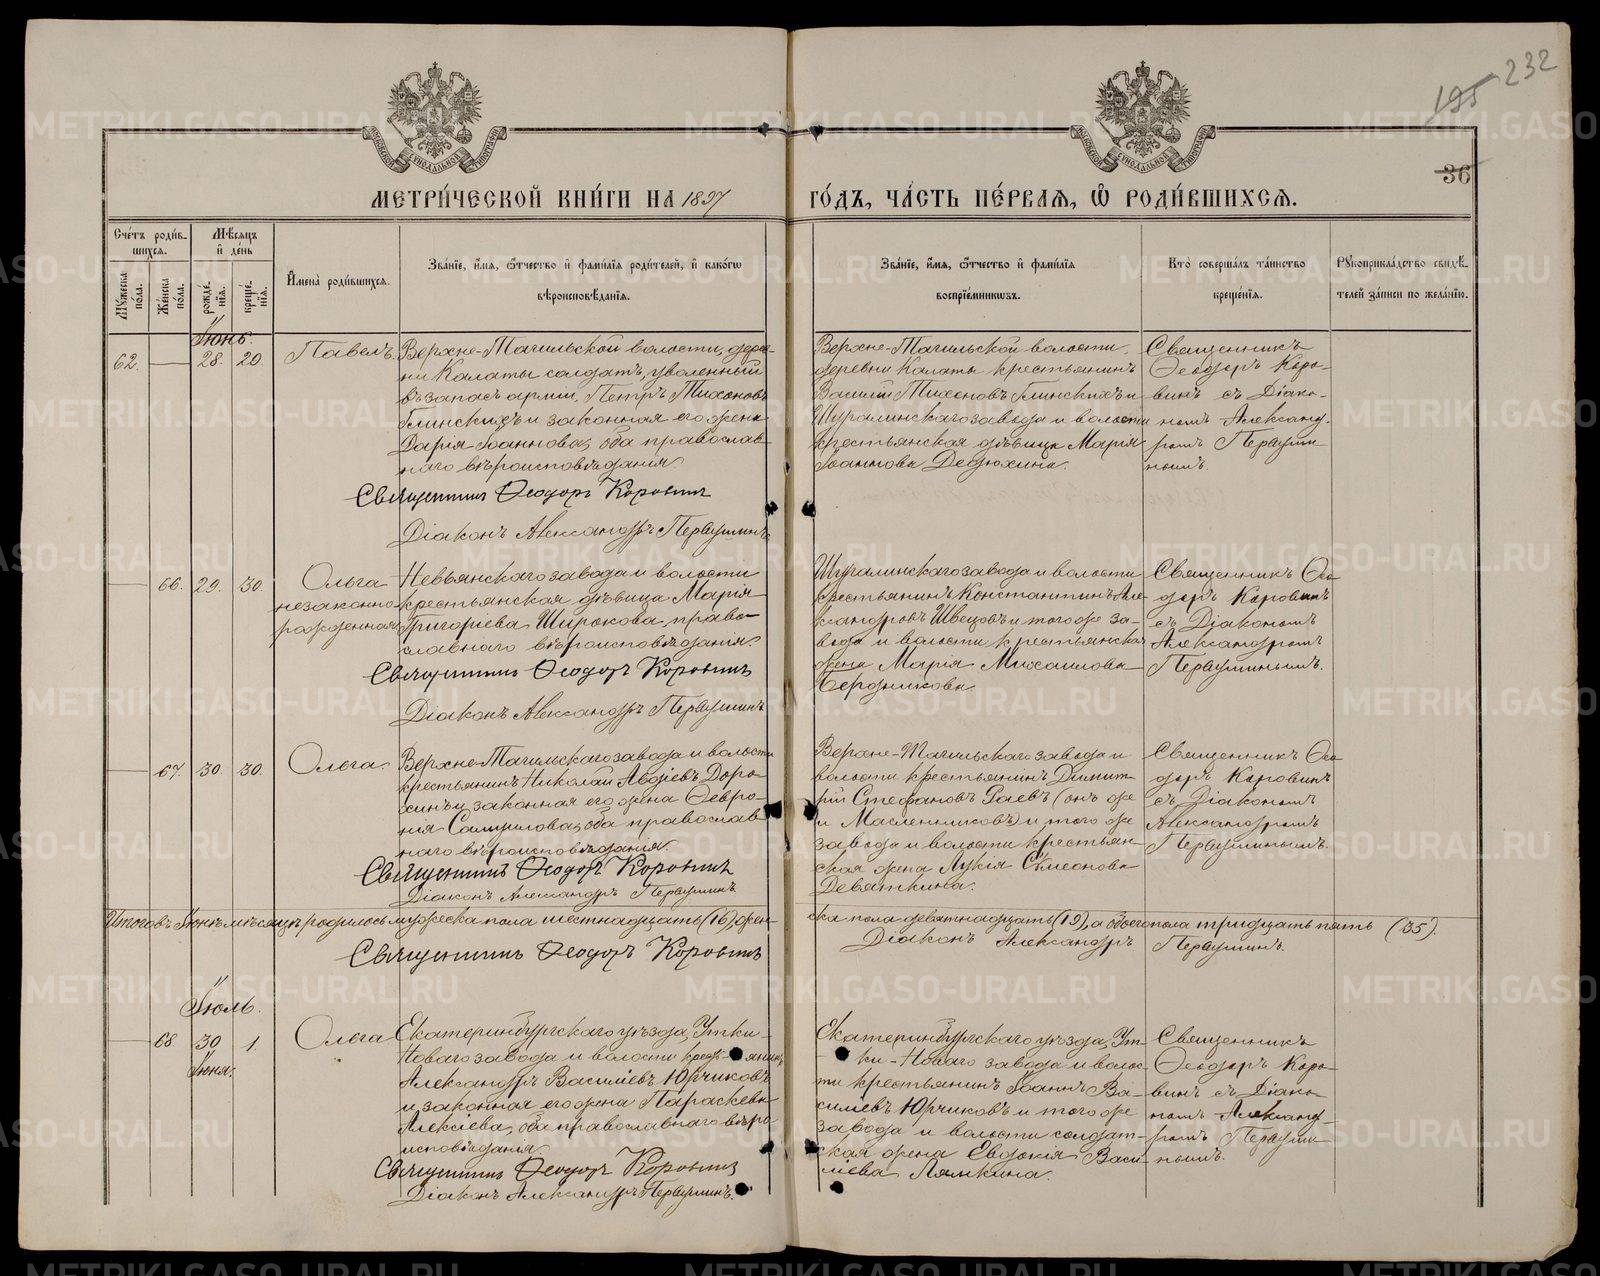 195 232
36
МЕТРИ́ЧЕСКОЙ КНИ́ГИ НА 1897 ГО́ДЪ, ЧА́СТЬ ПЕ́РВАѦ, Ѽ РОДИ́ВШИХСѦ.
Сче́тъ роди́в-
шихсѧ.
Мѣ́сѧцъ
и̂ де́нь
Мꙋ́жеска по́ла.
Же́нска по́ла.
рожде́нїѧ.
креще́нїѧ.
И҆мена̀ роди́вшихсѧ.
Зва́нїе, и҆́мѧ, ѻ҆́тчество и҆ фами́лїѧ роди́телей, и҆ како́гѡ
вѣроисповѣ́данїѧ.
Зва́нїе, и҆́мѧ, ѻ҆́тчество и҆ фами́лїѧ
воспрїе́мникѡвъ.
Кто̀ соверша́лъ та́инство
креще́нїѧ.
Рꙋкоприкла́дство свидѣ́-
телей за́писи по жела́нїю.
Іюнь.
62. — 28. 29. Павелъ.
Верхне-Тагильской волости, дерев-
ни Калаты солдатъ, уволенный
въ запасъ арміи, Петръ Тихоновъ
Глинскихъ и законная его жена
Дарія Іоаннова, оба православ-
наго вѣроисповѣданія.
Священникъ Ѳеодоръ Коровинъ
Діаконъ Александръ Первушинъ
Верхне-Тагильской волости,
деревни Калаты крестьянинъ
Василій Тихоновъ Глинскихъ и
Шуралинскаго завода и волости
крестьянская дѣвица Марія
Іоаннова Дедюхина.
Священникъ
Ѳеодоръ Коро-
винъ съ Діако-
номъ Александ-
ромъ Первуши-
нымъ.
— 66. 29. 30. Ольга
незаконно-
рожденная
Невьянскаго завода и волости
крестьянская дѣвица Марія
Григорьева Широкова, право-
славнаго вѣроисповѣданія.
Священникъ Ѳеодоръ Коровинъ
Діаконъ Александръ Первушинъ
Шуралинскаго завода и волости
крестьянинъ Константинъ Але-
ксандровъ Швецовъ и того же за-
вода и волости крестьянская
жена Марія Михаилова
Бердникова.
Священникъ Ѳео-
доръ Коровинъ
съ Діакономъ
Александромъ
Первушинымъ.
— 67. 30. 30. Ольга.
Верхне-Тагильскаго завода и волости
крестьянинъ Николай Авдіевъ Доро-
хинъ и законная его жена Ѳевро-
нія Самуилова, оба православ-
наго вѣроисповѣданія.
Священникъ Ѳеодоръ Коровинъ
Діаконъ Александръ Первушинъ
Верхне-Тагильскаго завода и
волости крестьянинъ Димит-
рій Стефановъ Раевъ (онъ же
и Масленниковъ) и того же
завода и волости крестьян-
ская жена Лукія Сѵмеонова
Девяткина.
Священникъ Ѳео-
доръ Коровинъ
съ Діакономъ
Александромъ
Первушинымъ.
Итого въ Іюнѣ мѣсяцѣ родилось мужеска пола шестнадцать (16), жен-
ска пола девятнадцать (19), а обоего пола тридцать пять (35).
Священникъ Ѳеодоръ Коровинъ
Діаконъ Александръ Первушинъ.
Іюль.
— 68 30 1. Ольга
Іюня.
Екатеринбургскаго уѣзда, Утки-
Новаго завода и волости крестьянинъ
Александръ Василіевъ Юрчиковъ
и законная его жена Параскева
Алексіева, оба православнаго вѣро-
исповѣданія.
Священникъ Ѳеодоръ Коровинъ
Діаконъ Александръ Первушинъ.
Екатеринбургскаго уѣзда, Ут-
ки-Новаго завода и волос-
ти крестьянинъ Іоаннъ Ва-
силіевъ Юрчиковъ и того же
завода и волости солдат-
ская жена Евдокія Васи-
ліева Лямкина.
Священникъ
Ѳеодоръ Коро-
винъ съ Діако-
номъ Александ-
ромъ Первуши-
нымъ.
METRIKI.GASO-URAL.RU